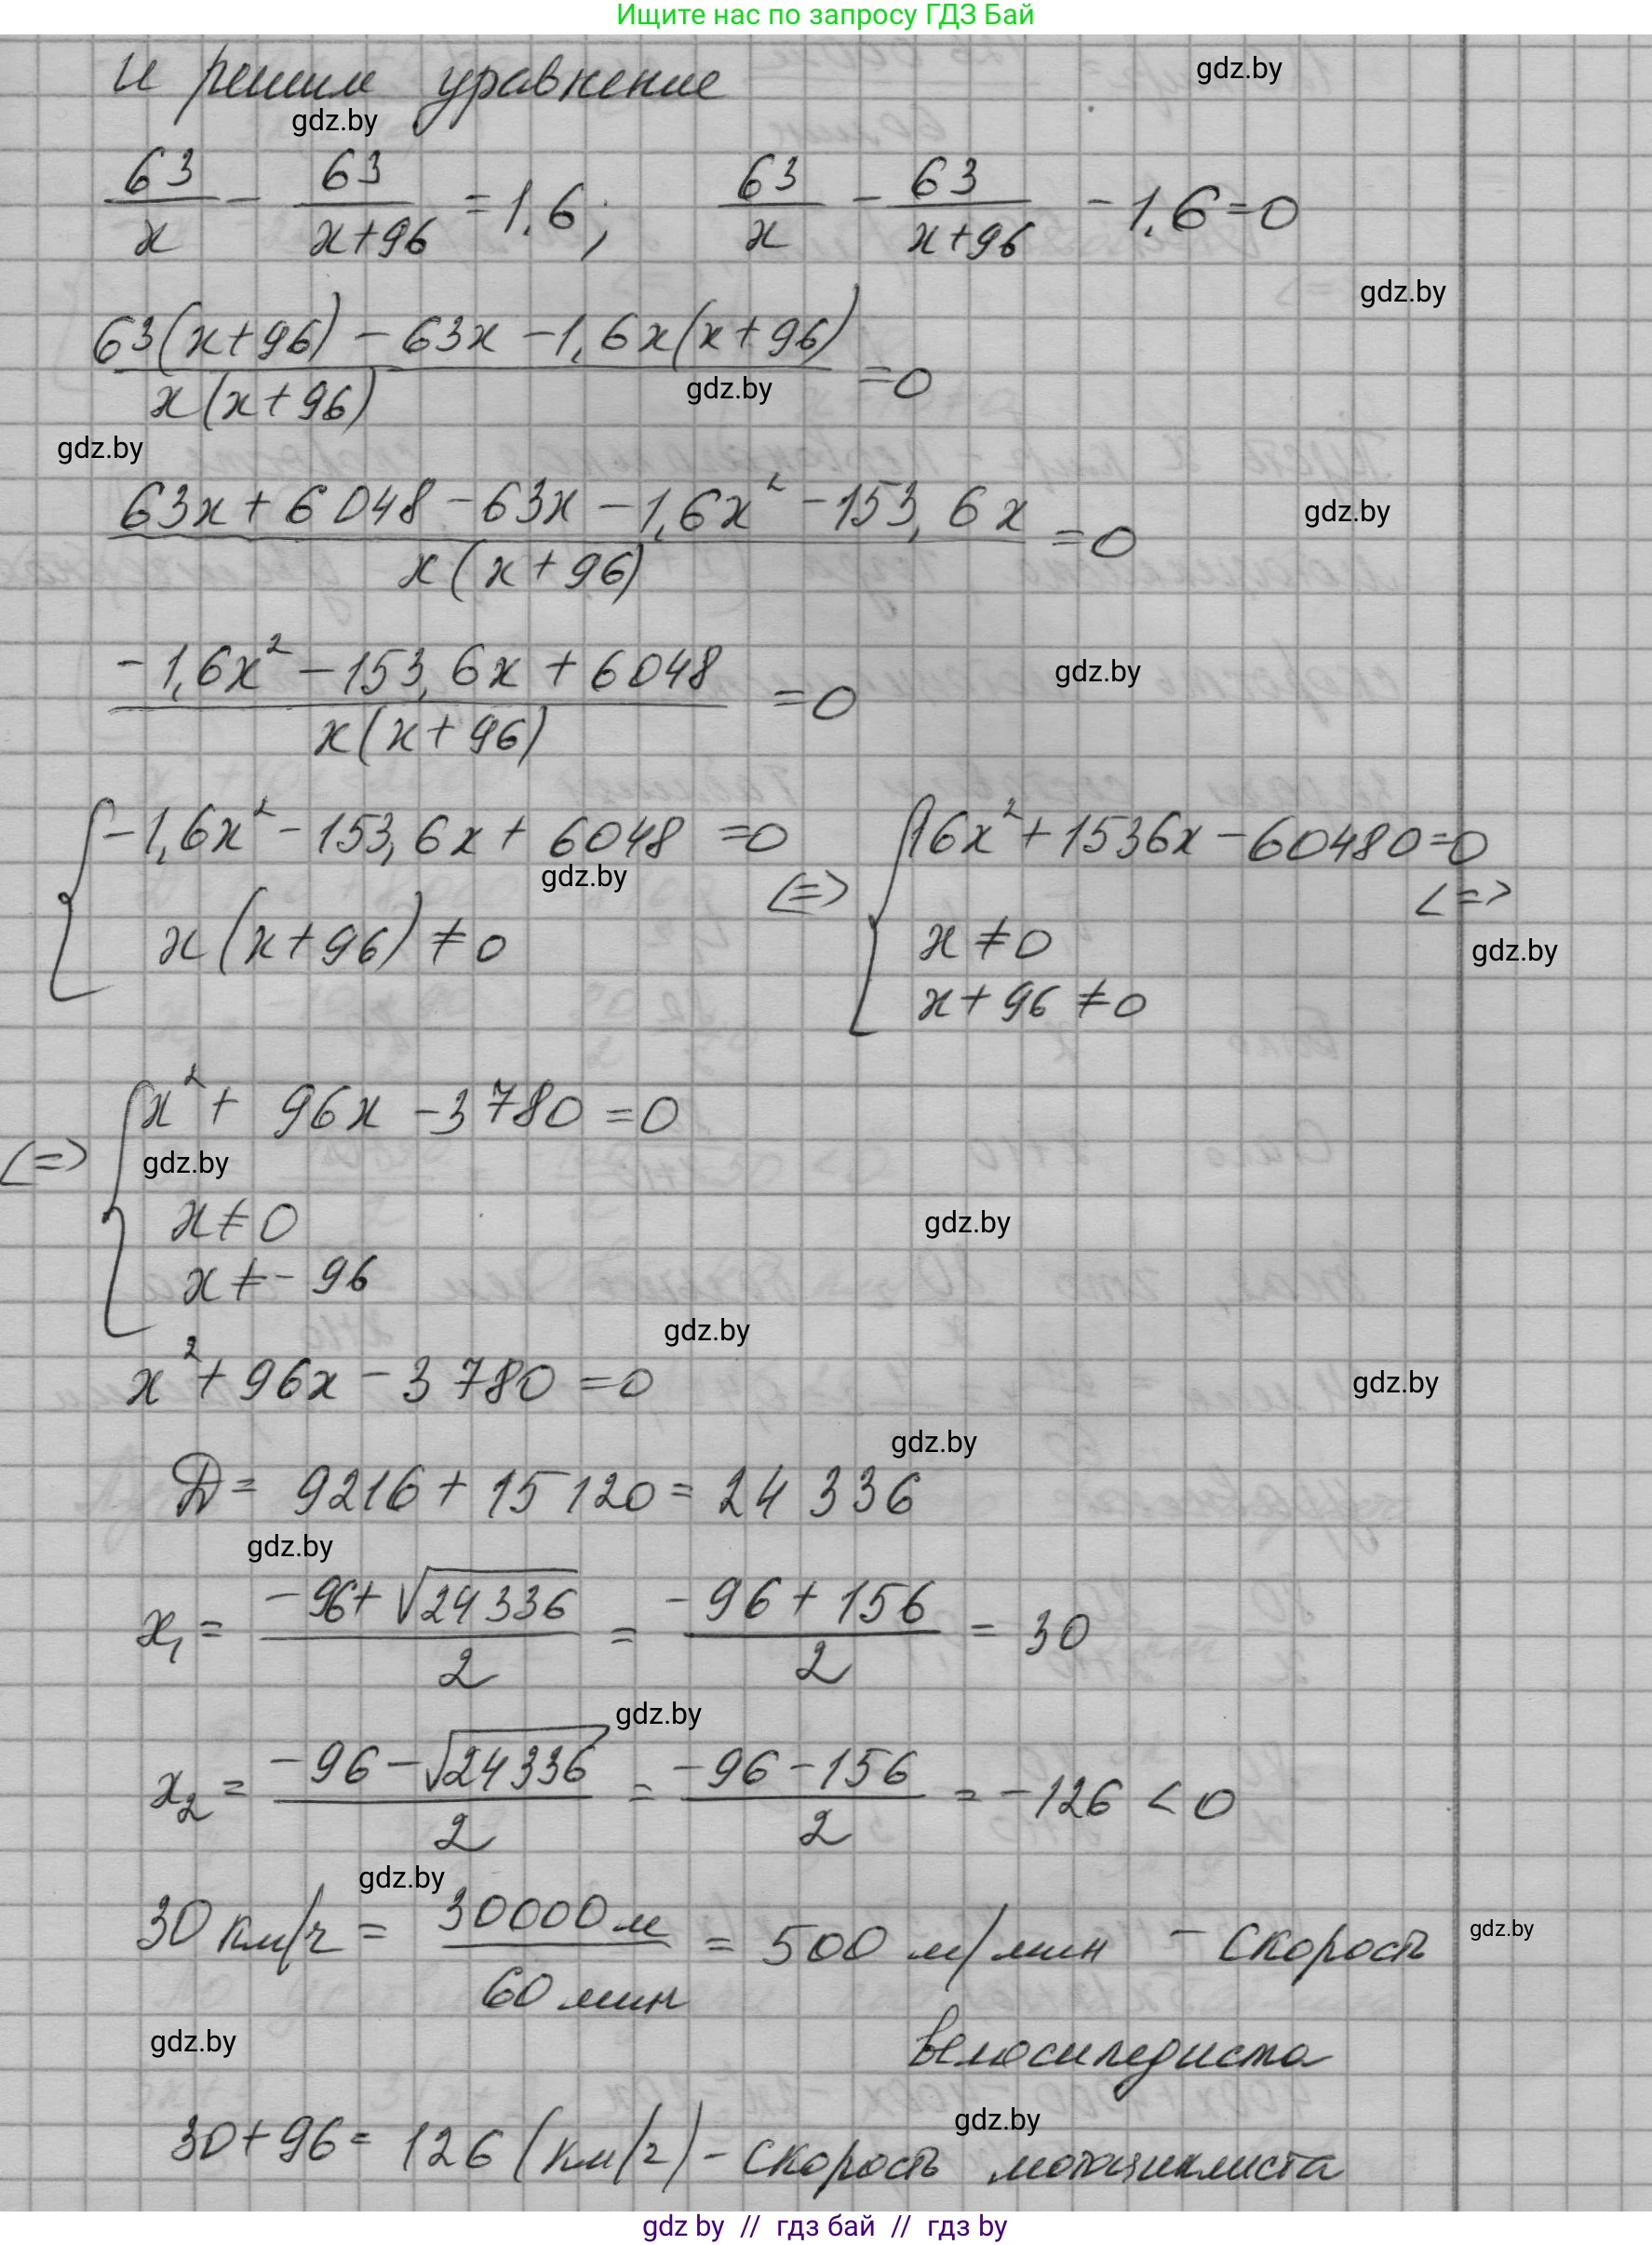 Ищите нас по запросу ГДЗ Бай
и решим уравнение
gdz.by
gdz.by
63/x - 63/(x+96) = 1,6; 63/x - 63/(x+96) - 1,6 = 0
gdz.by
(63(x+96) - 63x - 1,6x(x+96))/(x(x+96)) = 0
gdz.by
gdz.by
(63x + 6048 - 63x - 1,6x² - 153,6x)/(x(x+96)) = 0
gdz.by
(-1,6x² - 153,6x + 6048)/(x(x+96)) = 0
gdz.by
{ -1,6x² - 153,6x + 6048 = 0 <=> { 16x² + 1536x - 60480 = 0 <=>
gdz.by
x(x+96) ≠ 0 x ≠ 0
gdz.by
x + 96 ≠ 0
<=> { x² + 96x - 3780 = 0
gdz.by
x ≠ 0
gdz.by
x ≠ - 96
gdz.by
x² + 96x - 3780 = 0
gdz.by
gdz.by
D = 9216 + 15120 = 24336
gdz.by
x₁ = (-96 + √24336)/2 = (-96 + 156)/2 = 30
gdz.by
x₂ = (-96 - √24336)/2 = (-96 - 156)/2 = -126 < 0
gdz.by
30 км/ч = 30000 м/60 мин = 500 м/мин - скорость
gdz.by
велосипедиста
gdz.by
gdz.by
30 + 96 = 126 (км/ч) - скорость мотоциклиста
gdz by // гдз бай // gdz by